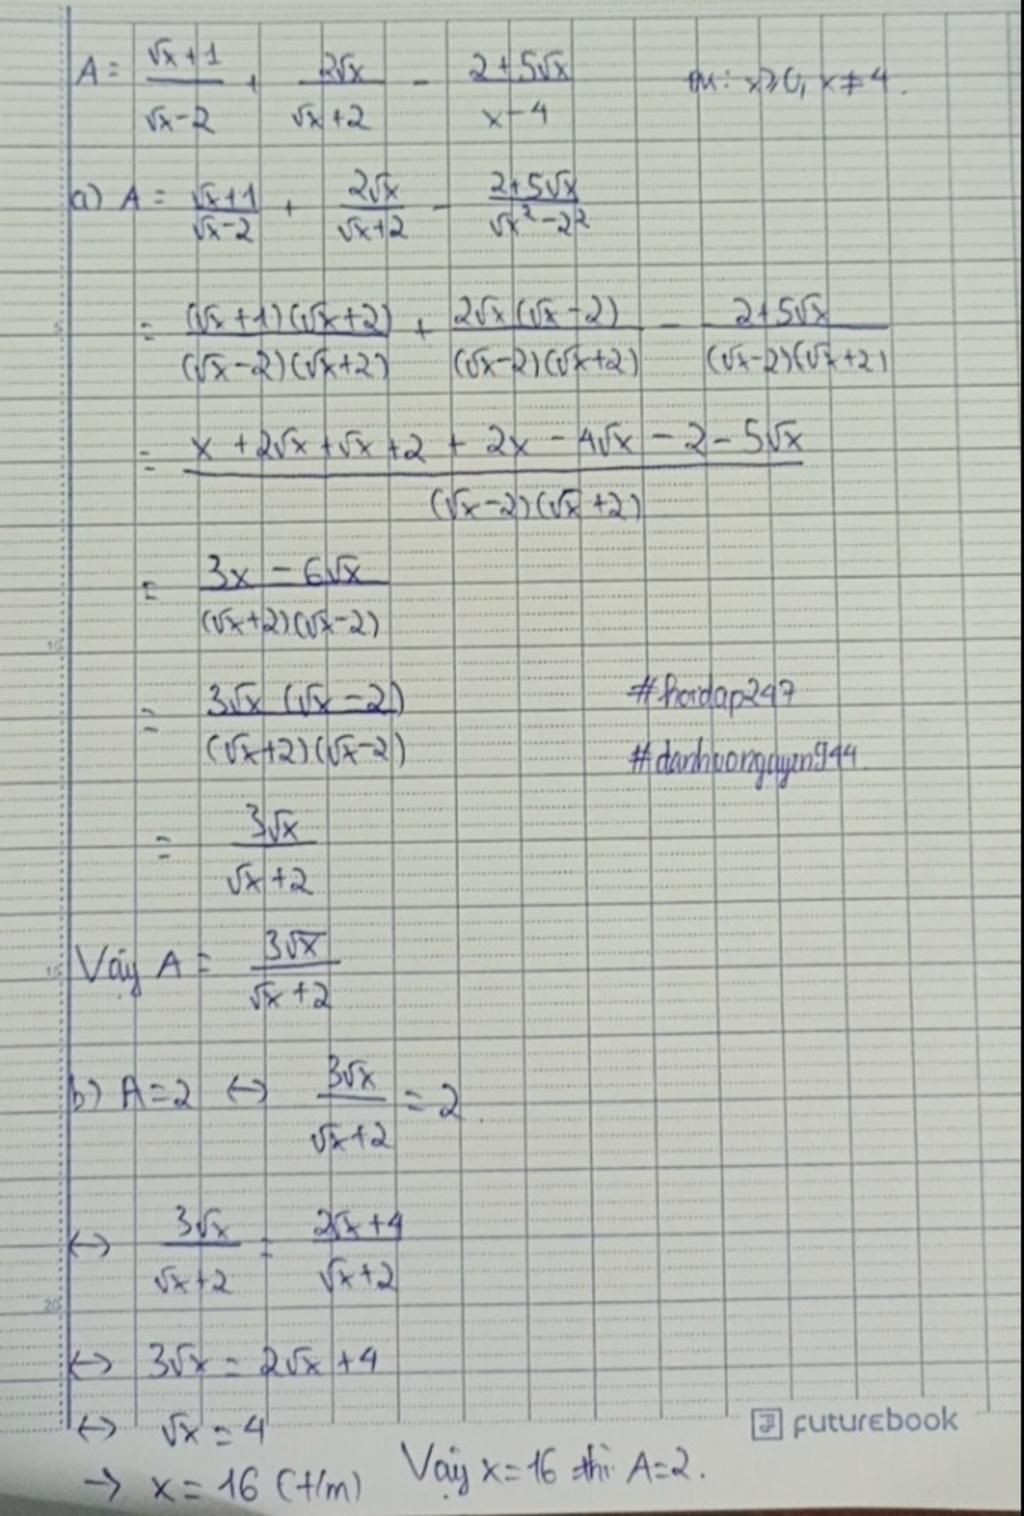 A = (√x+1)/(√x-2) + 2√x/(√x+2) - (2+5√x)/(x-4) đk: x≥0, x≠4.
a) A = (√x+1)/(√x-2) + 2√x/(√x+2) - (2+5√x)/(√x²-2²)
= (√x+1)(√x+2)/(√x-2)(√x+2) + 2√x(√x-2)/(√x-2)(√x+2) - (2+5√x)/(√x-2)(√x+2)
= (x+2√x+√x+2+2x-4√x-2-5√x)/(√x-2)(√x+2)
= (3x-6√x)/(√x+2)(√x-2)
= 3√x(√x-2)/(√x+2)(√x-2)
#hoidap247
#danhvonguyen944
= 3√x/(√x+2)
Vậy A = 3√x/(√x+2)
b) A=2 ↔ 3√x/(√x+2) = 2
↔ 3√x/(√x+2) = (2√x+4)/(√x+2)
↔ 3√x = 2√x+4
↔ √x = 4
→ x = 16 (t/m) Vậy x=16 thì A=2.
FUTUREBOOK
5
10
15
20